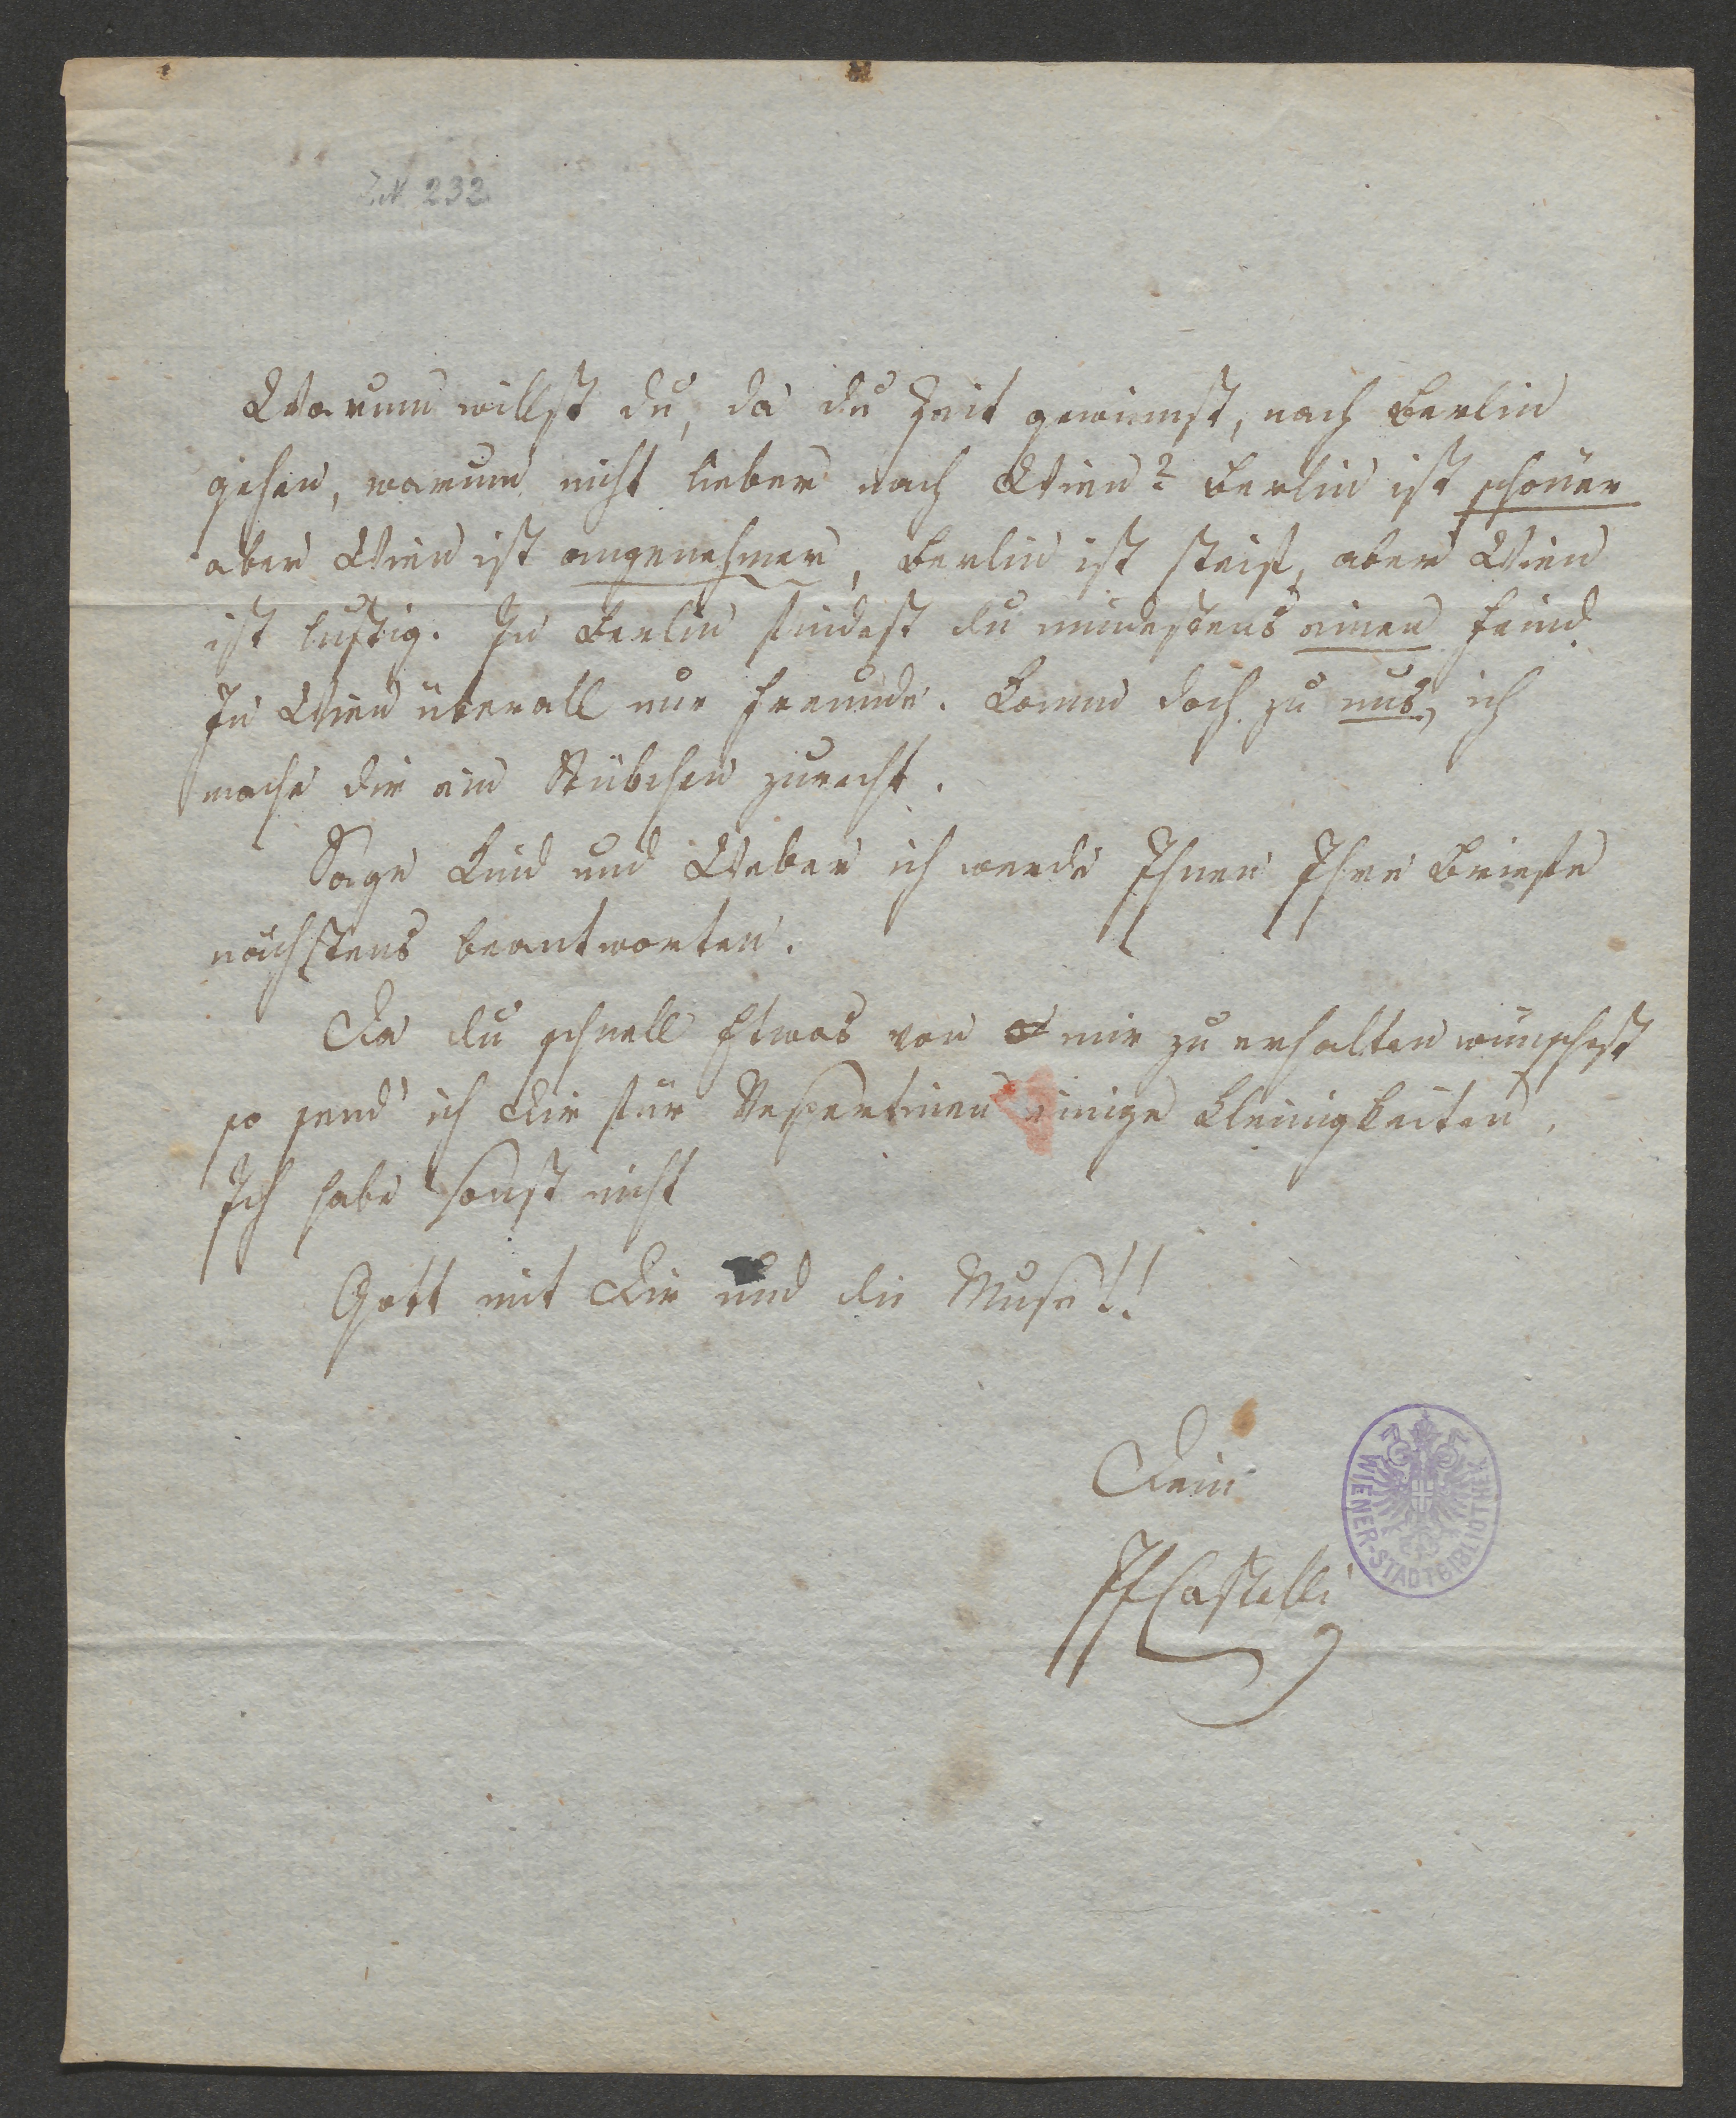 I.N. 232
Warum willst du, da du Zeit gewinnst, nach Berlin
gehen, warum nicht lieber nach Wien? Berlin ist schöner
aber Wien ist angenehmer, Berlin ist steif, aber Wien
ist lustig. In Berlin findest du mindestens einen Feind
In Wien überall nur Freunde. Komm doch zu uns, ich
mache dir ein Stübchen zurecht.
Sage Kind und Weber ich werde Ihnen Ihre Briefe
nächstens beantworten.
Da du schnell Etwas von mir zu erhalten wünschest
so send' ich Dir für Vespertinen einige Kleinigkeiten.
Ich habe sonst nicht
Gott mit Dir und die Muse!!
Dein
IFCastelli
WIENER-STADTBIBLIOTHEK